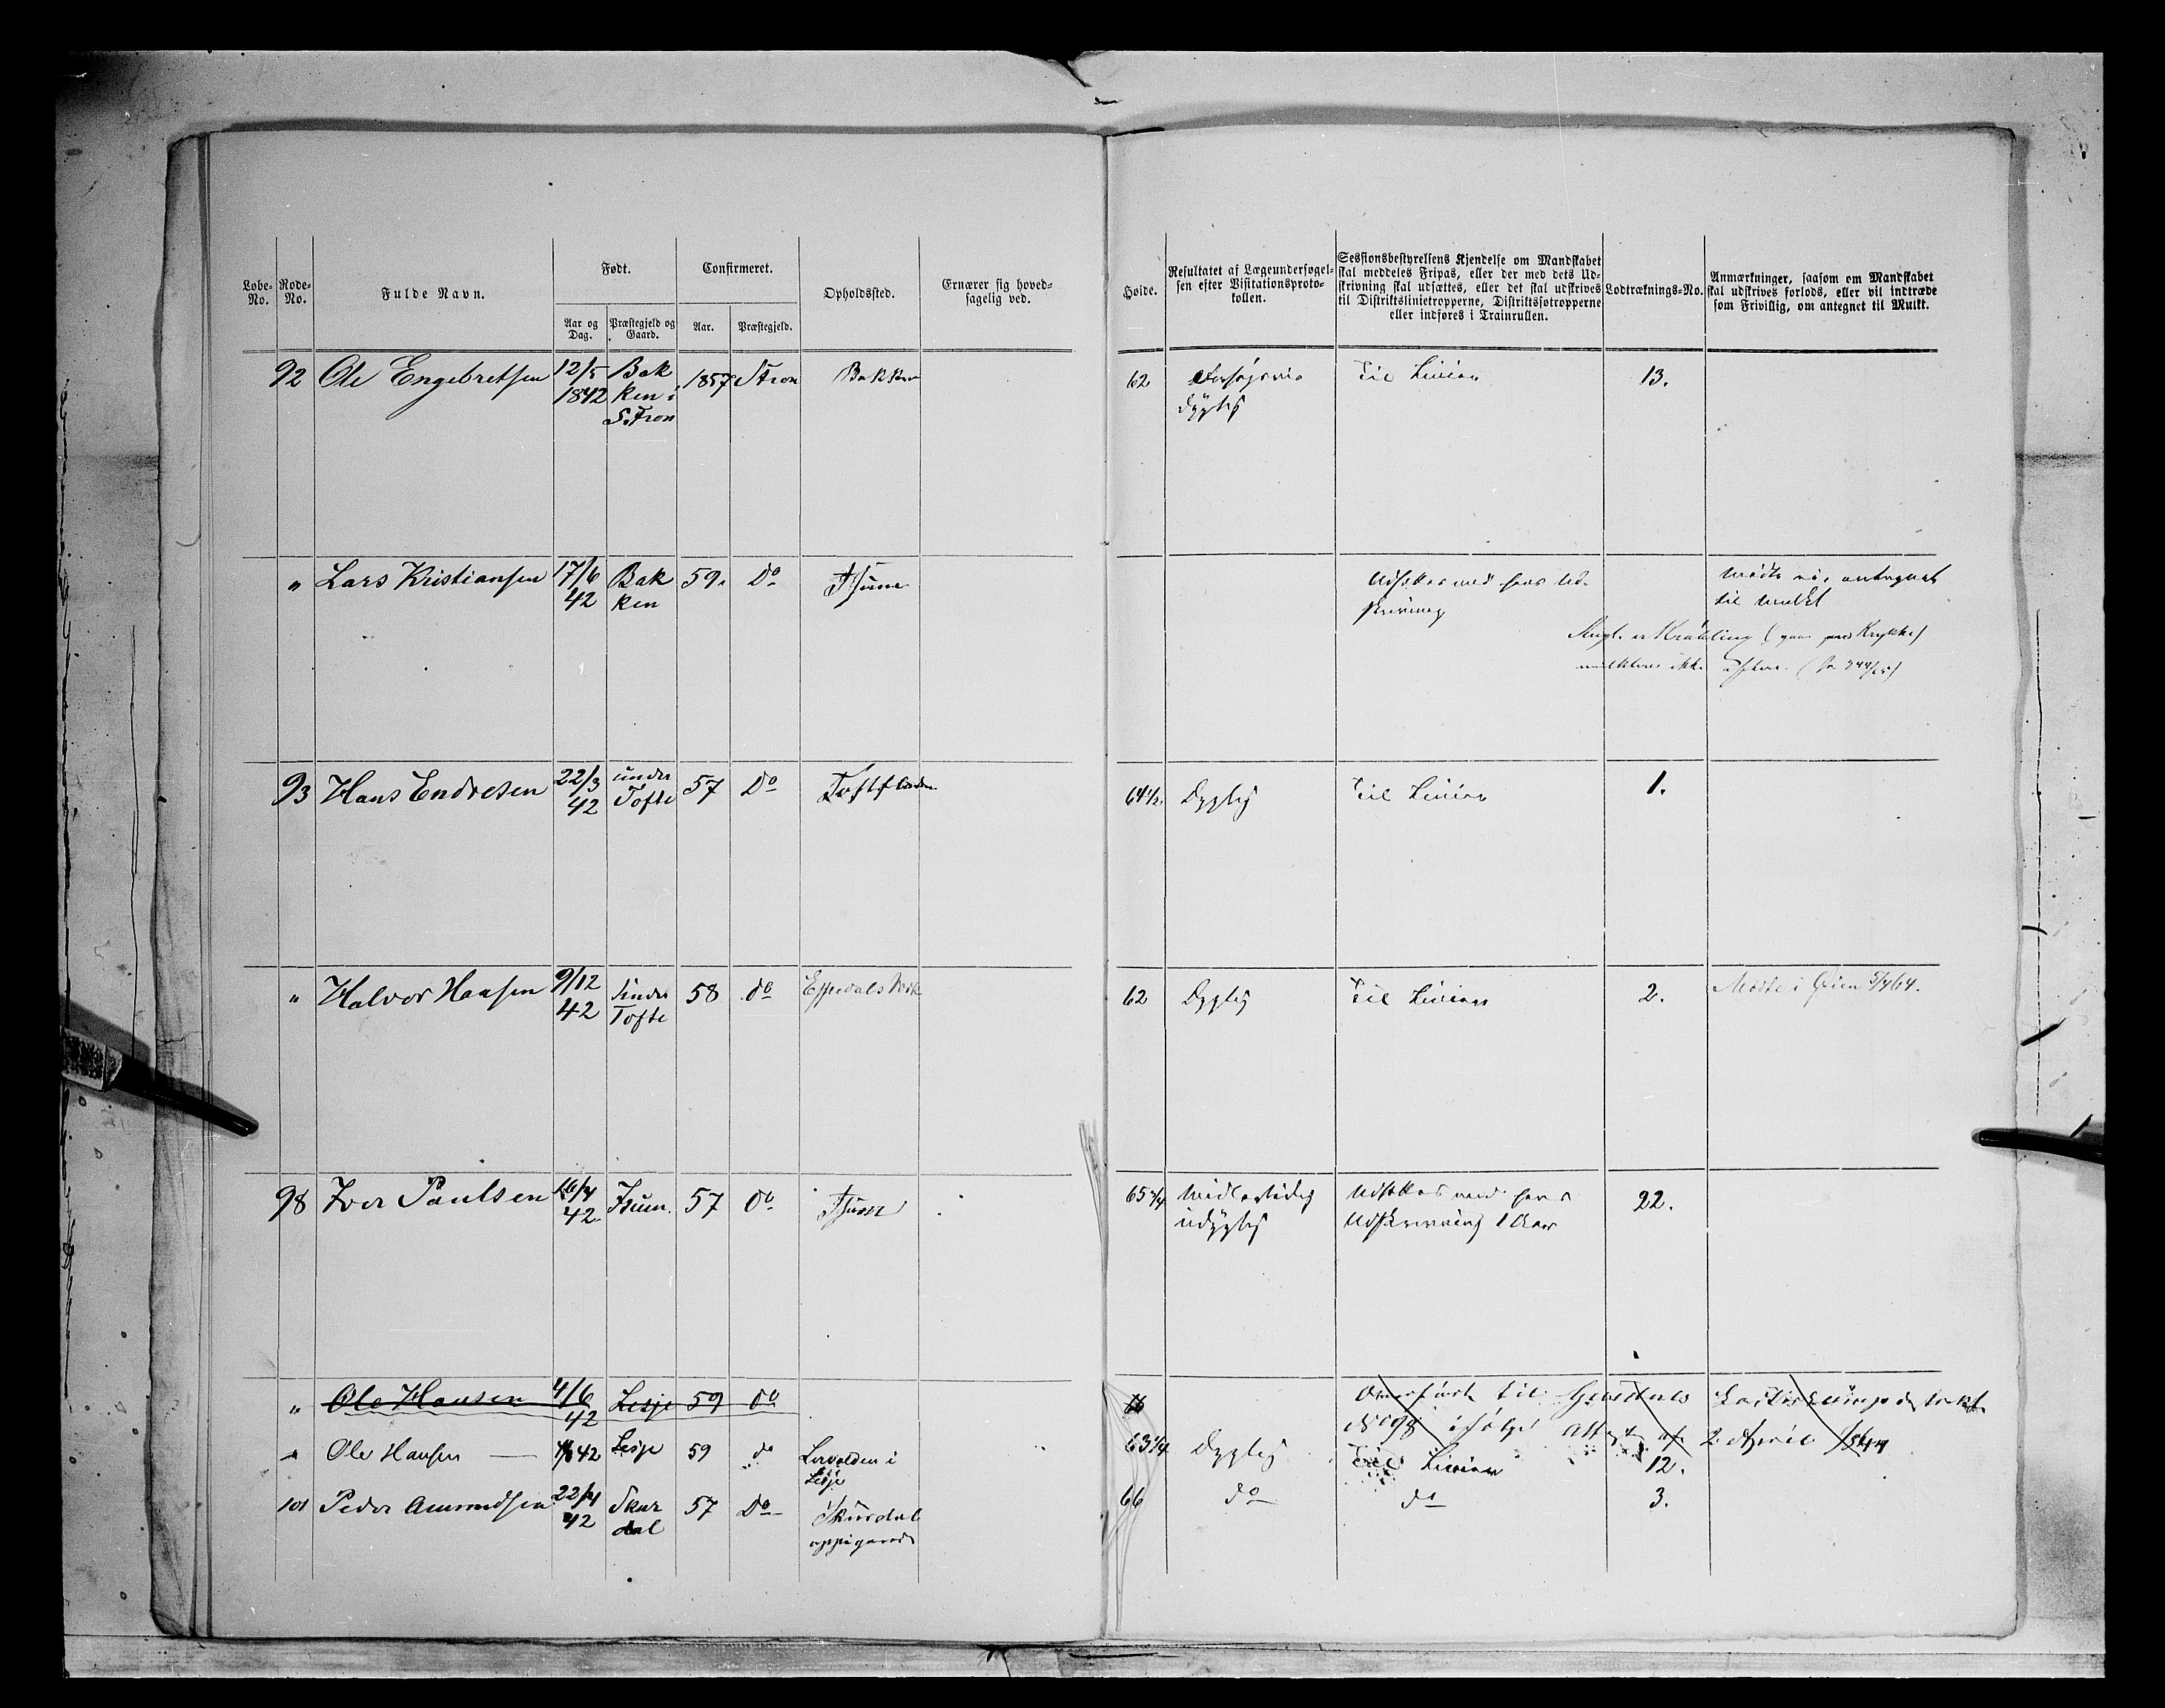 Løbe-No.
Rode-No.
Fulde Navn.
Født.
Aar og Dag.
Præstegjeld og Gaard.
Confirmeret.
Aar.
Præstegjeld.
Opholdssted.
Ernærer sig hoved-
sagelig ved.
Høide.
Resultatet af Lægeundersøgel-
sen efter Visitationsproto-
kollen.
Sessionsbestyrelsens Kjendelse om Mandskabet
skal meddeles Fripas, eller der med dets Ud-
skrivning skal udsættes, eller det skal udskrives
til Distriktslinietropperne, Distriktsfotropperne
eller indføres i Trainrullen.
Lodtræknings-No.
Anmærkninger, saasom om Mandskabet
skal udskrives forlods, eller vil indtræde
som Frivillig, om antegnet til Mulkt.
92 Ole Engebretsen 12/5 1842 Bakken i S. Fron 1857 S Fron Bakken 62 dygtig Til Linien 13.
" Lars Kristiansen 17/6 42 Bakken 59. Do Udsættes med hans Ud-
skrivning
Mødte ei, antegnet
til Mulkt
Angl. er Krøbling (gaar paa Krykke)
mulkteres ikke
93 Hans Endresen 22/3 42 under Tofte 57 Do 64 1/2 Dygtig Til Linien 1.
" Halvor Hansen 9/12 42 Under Tofte 58 do Espedals Værk 62 Dygtig Til Linien 2. Mødte i Øien 5/7 64.
98 Iver Paulsen 42 57 Do 65 3/4 Midlertidig
udygtig
Udsættes med hans
Udskrivning 1 Aar
22.
" Ole Hansen 4/6 42 Lesje 59 do
Overført til
No 98 ifølge Attest af 2 April
" Ole Hansen 4/6 42 Lesje 59 do i Lesje 63 1/4 Dygtig Til Linien 12.
101 Peder Amundsen 42 Skurdal 57 Do Skurdal
oppigaard
66 do do 3.